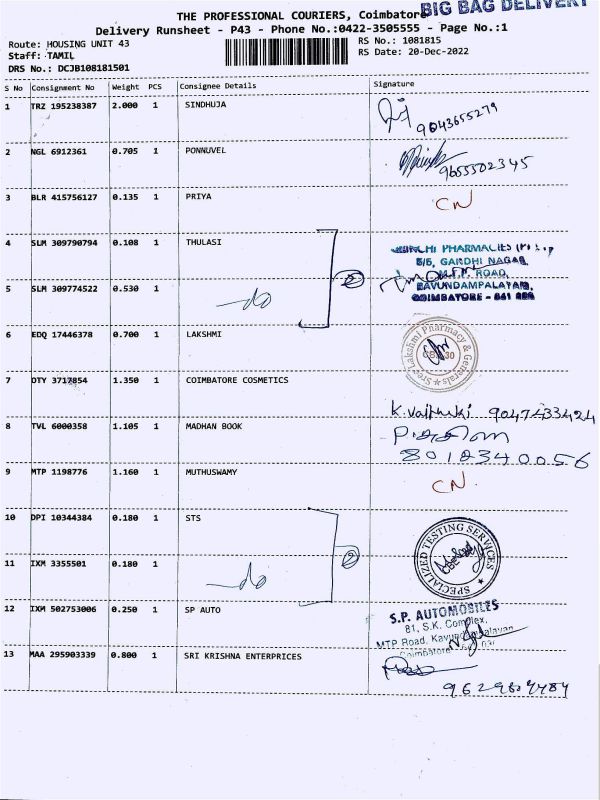 BIG BAG DELIVERY
THE PROFESSIONAL COURIERS, Coimbatore
Delivery Runsheet - P43 - Phone No.:0422-3505555 - Page No.:1
Route: HOUSING UNIT 43
Staff: TAMIL
DRS No.: DCJB108181501
RS No.: 1081815
RS Date: 20-Dec-2022
S No Consignment No Weight PCS Consignee Details Signature
1 TRZ 195238387 2.000 1 SINDHUJA
9043655279
2 NGL 6912361 0.705 1 PONNUVEL
9655502345
3 BLR 415756127 0.135 1 PRIYA CN
4 SLM 309790794 0.108 1 THULASI
PHARMACIES
5/5, GANDHI NAGAR
M.T.P. ROAD,
KAVUNDAMPALAYAM,
COIMBATORE - 641
5 SLM 309774522 0.530 1 do 2
6 EDQ 17446378 0.700 1 LAKSHMI
Sree Lakshmi Pharmacy & Generals
7 DTY 3717854 1.350 1 COIMBATORE COSMETICS
9047433424
8 TVL 6000358 1.105 1 MADHAN BOOK
8012340056
9 MTP 1198776 1.160 1 MUTHUSWAMY CN.
10 DPI 10344384 0.180 1 STS
SPECIALIZED TESTING SERVICES
11 IXM 3355501 0.180 1 do 2
12 IXM 502753006 0.250 1 SP AUTO
S.P. AUTOMOBILES
81, S.K. Complex,
MTP Road,
Coimbatore
13 MAA 295903339 0.800 1 SRI KRISHNA ENTERPRICES